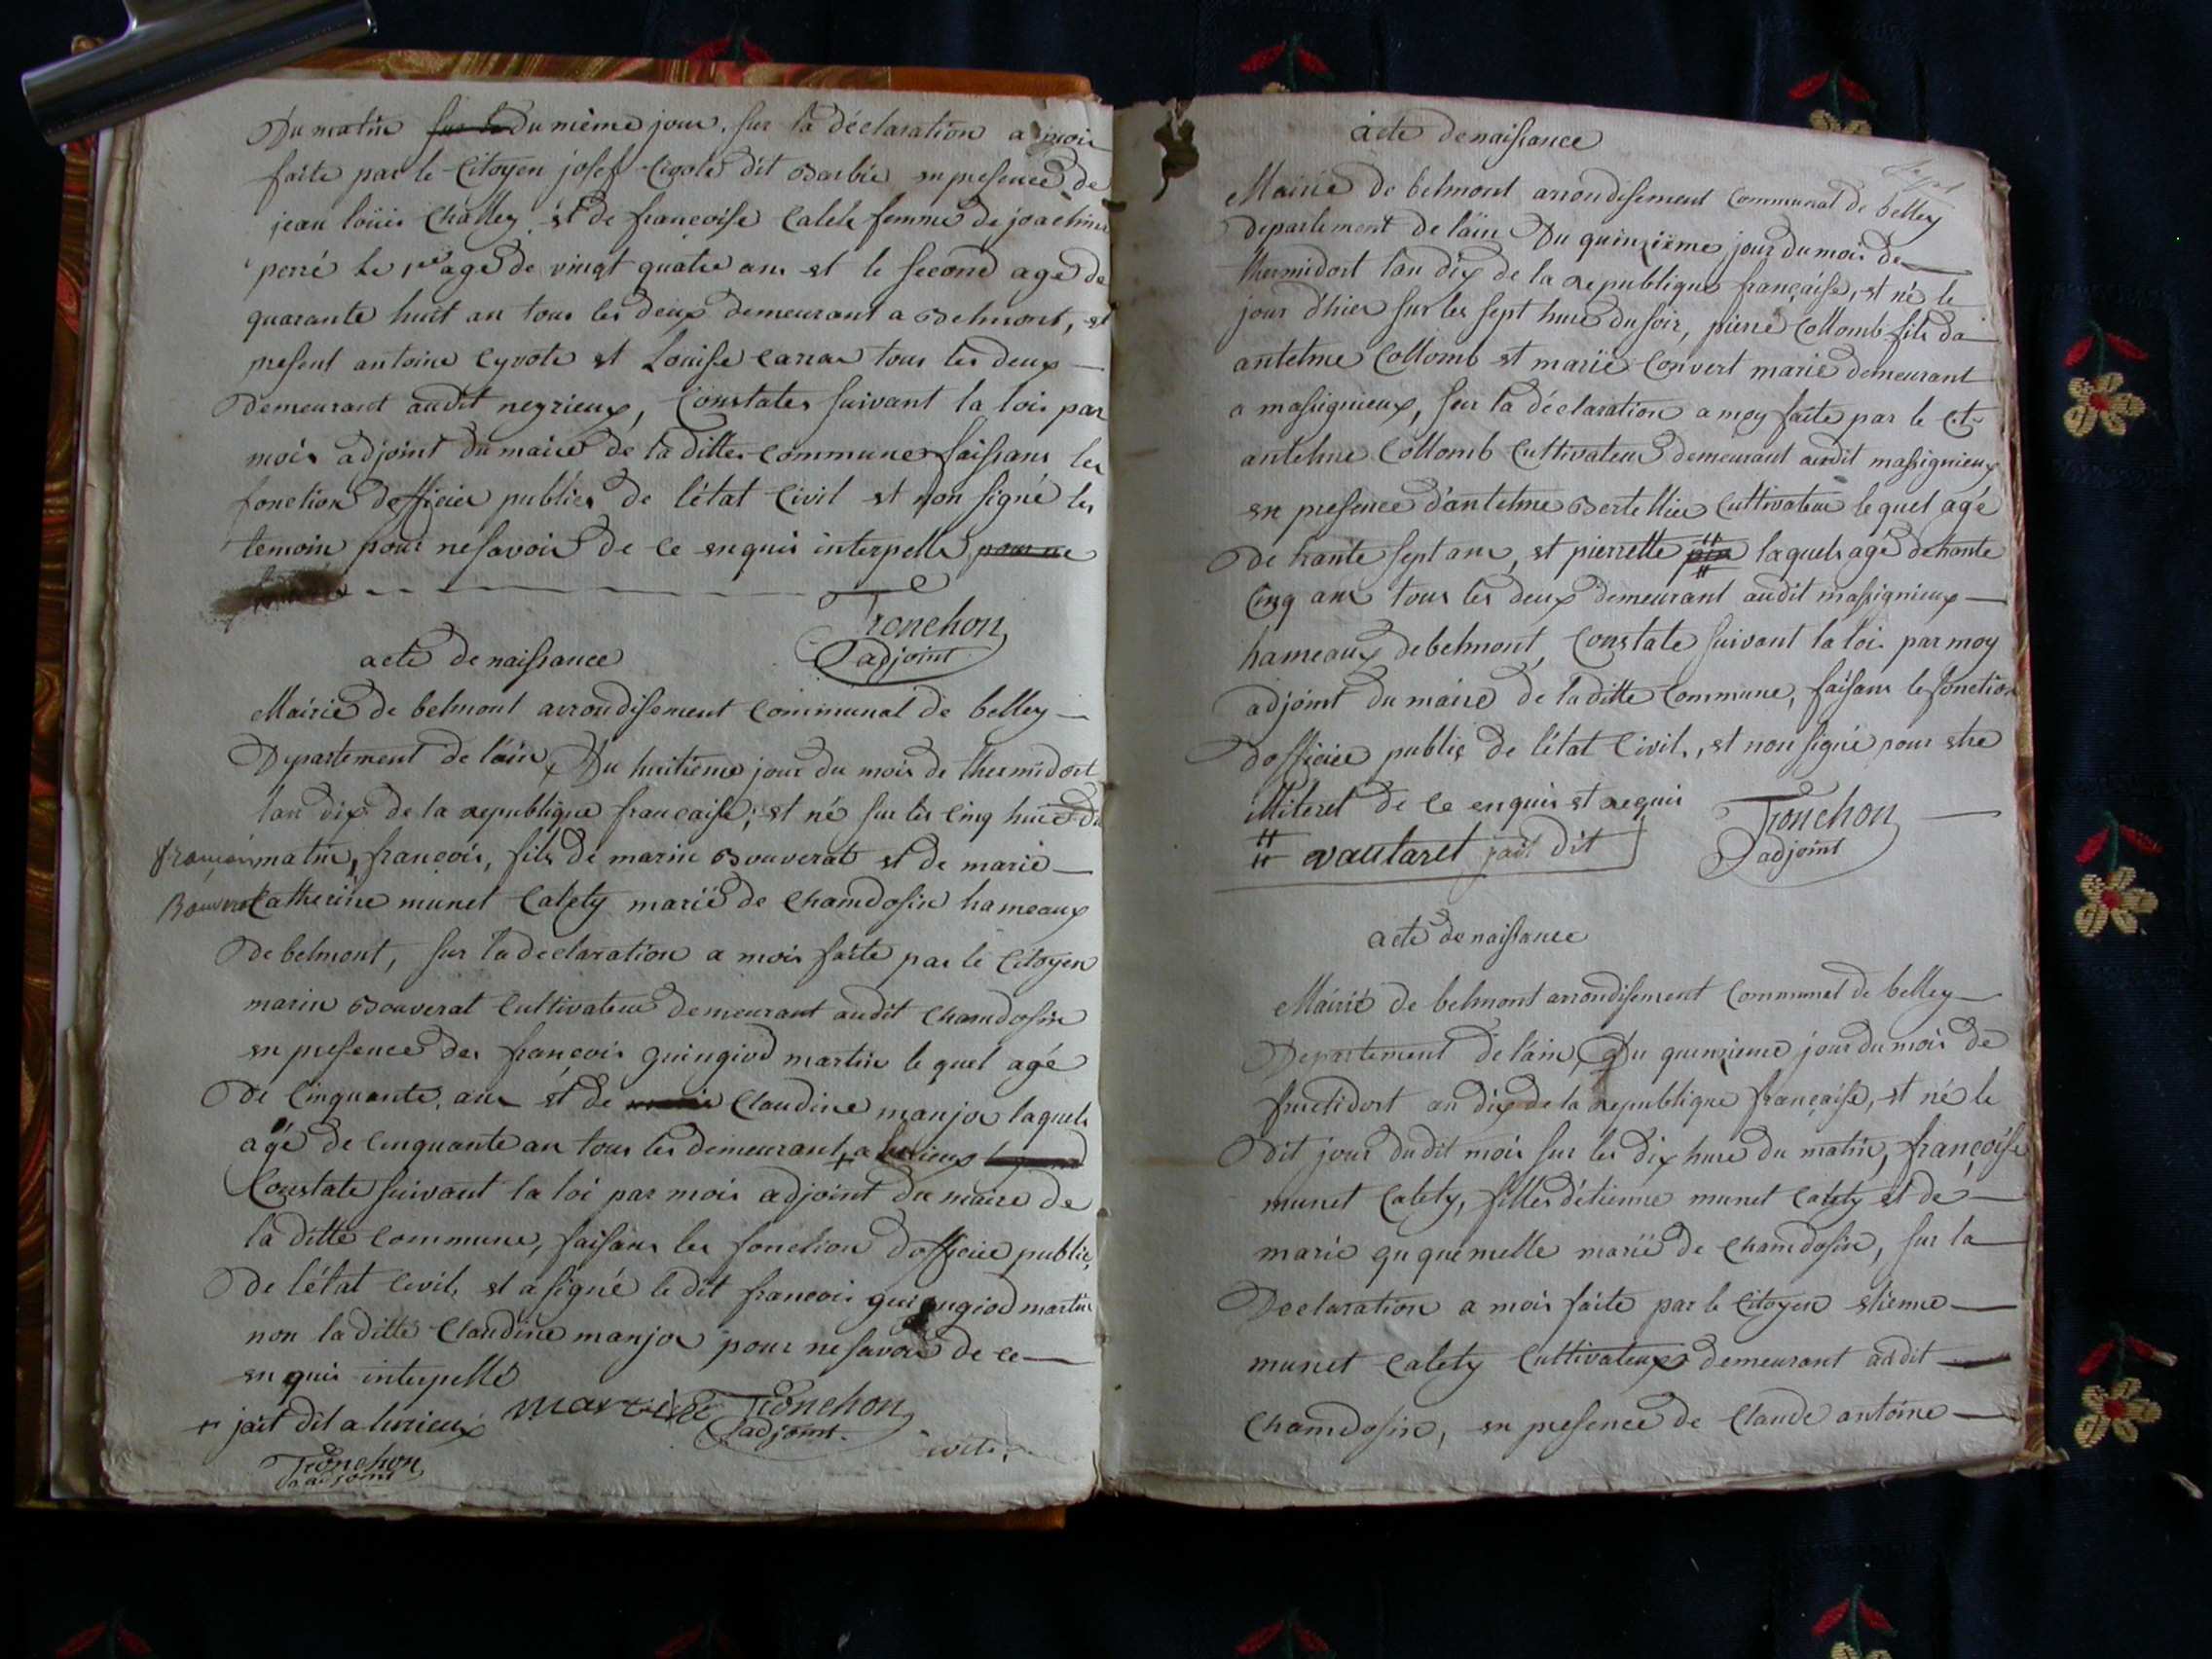 Du matin sur le Du même jour, sur la déclaration a moi
faite par le Citoyen josef Cirote dit Barbie en presence de
jean loüis Challey et de francoise Calele femme de joachim
perré le 1er agé de vingt quatre ans et le second agé de
quarante huit an tous les deux demeurant a Belmont, et
present antoine Cyrote et Louise Carrar tous les deux
Demeurant audit neyrieux, Constates suivant la loi par
mois adjoint du maire de la ditte commune faissans les
fonction dofficier publics de létat Civil et non signé les
temoin pour ne savoir de ce enquis interpellé pour ne
Tronchon
adjoint
acte de naissance
Mairie de belmont arrondisement communal de belley
Departement de laïn, Du huitieme jour du mois de thermidort
lan dix de la republique francaise; et né sur les cinq hure du
françois matin, francois, fils de marin Bouverat et de marie
Bouverat Catherine munet Calety mariè de Chamdosin hameaux
De belmont, sur la declaration a mois faite par le Citoyen
marin Bouverat Cultivateur demeurant audit Chamdosin
en presence des françois guingiod martin le quel agé
De Cinquante ans et de Claudine manjor laquels
agé de Cinquante an tous les demeurant + a lurieux
Constate suivant la loi par mois adjoint du maire de
la ditte commune, faisans les fonction dofficier public,
De létat Civil, et a signé le dit francois guingiod martin
non la ditte Claudine manjor pour ne savoir de ce
en quis interpellé
martin Tronchon
adjoint
+ jait dit a lurieux
Tronchon
adjoint
acte de naissance
Mairie de belmont arrondisement communal de belley
Departement de laïn Du quinziëme jour du mois de
thermidort lan dix de la republique françaíse, et né le
jour d'hier sur les sept hure du soir, pierre Collomb fils da
antelme Collomb et mariè Convert marié demeurant
a massignieux, sur la déclaration a moy faite par le Cit.
antelme Collomb Cultivateur demeurant audit massignieux
en presence d'antelme Bertellier Cultivateur le quel agé
De trante sept ans, et pierrette laquels agé de trante
Cinq ans tous les deux demeurant audit massignieux
hameaux de belmont, Constate suivant la loi par moy
adjoint du maire de la ditte commune, faisans le fonction
dofficier public de létat Civil, et non signé pour etre
illiteret de ce enquis et requis
Tronchon
adjoint
vautaret jait dit
acte de naissance
Mairie de belmont arrondisement communal de belley
Departement de laïn, Du quinzieme jour du mois de
fructidort an dix de la republique françaíse, et né le
Dit jour dudit mois sur les dix hure du matin, françoise
munet Calety, filles détienne munet Calety et de
marie guquemelle mariè de Chamdosin, sur la
Declaration a mois faite par le Citoyen etienne
munet Calety Cultivateur demeurant audit
Chamdosin, en presence de Claude antoine